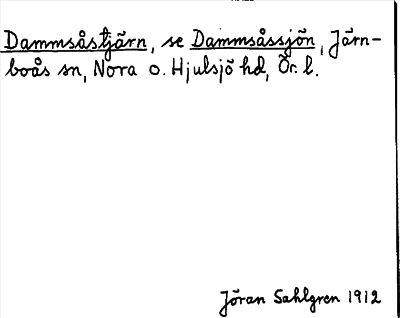 Dammsåstjärn, se Dammsåssjön, Järn-
boås sn, Nora o. Hjulsjö hd, Ör. l.
Jöran Sahlgren 1912